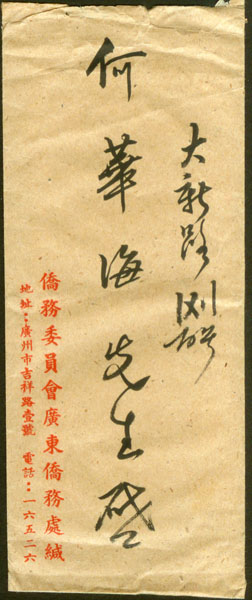 大新路
何華海先生啓
僑務委員會廣東僑務處緘
地址：廣州市吉祥路壹號 電話：一六五二六